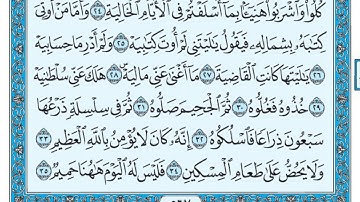 كُلُوا۟ وَٱشْرَبُوا۟ هَنِيٓـًٔۢا بِمَآ أَسْلَفْتُمْ فِى ٱلْأَيَّامِ ٱلْخَالِيَةِ ٢٤ وَأَمَّا مَنْ أُوتِىَ
كِتَٰبَهُۥ بِشِمَالِهِۦ فَيَقُولُ يَٰلَيْتَنِى لَمْ أُوتَ كِتَٰبِيَهْ ٢٥ وَلَمْ أَدْرِ مَا حِسَابِيَهْ
٢٦ يَٰلَيْتَهَا كَانَتِ ٱلْقَاضِيَةَ ٢٧ مَآ أَغْنَىٰ عَنِّى مَالِيَهْ ٢٨ هَلَكَ عَنِّى سُلْطَٰنِيَهْ
٢٩ خُذُوهُ فَغُلُّوهُ ٣٠ ثُمَّ ٱلْجَحِيمَ صَلُّوهُ ٣١ ثُمَّ فِى سِلْسِلَةٍ ذَرْعُهَا
سَبْعُونَ ذِرَاعًا فَٱسْلُكُوهُ ٣٢ إِنَّهُۥ كَانَ لَا يُؤْمِنُ بِٱللَّهِ ٱلْعَظِيمِ ٣٣
وَلَا يَحُضُّ عَلَىٰ طَعَامِ ٱلْمِسْكِينِ ٣٤ فَلَيْسَ لَهُ ٱلْيَوْمَ هَٰهُنَا حَمِيمٌ ٣٥